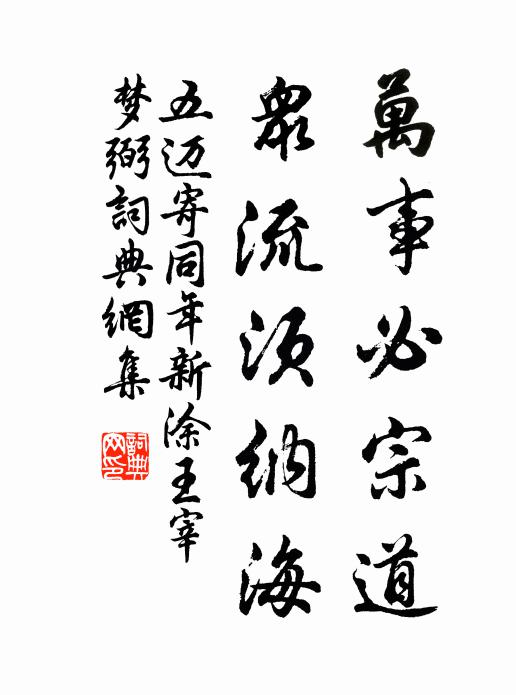 萬事必宗道
眾流須納海
五迈寄同年新涂王宰
梦弼詞典網集
詞典网印